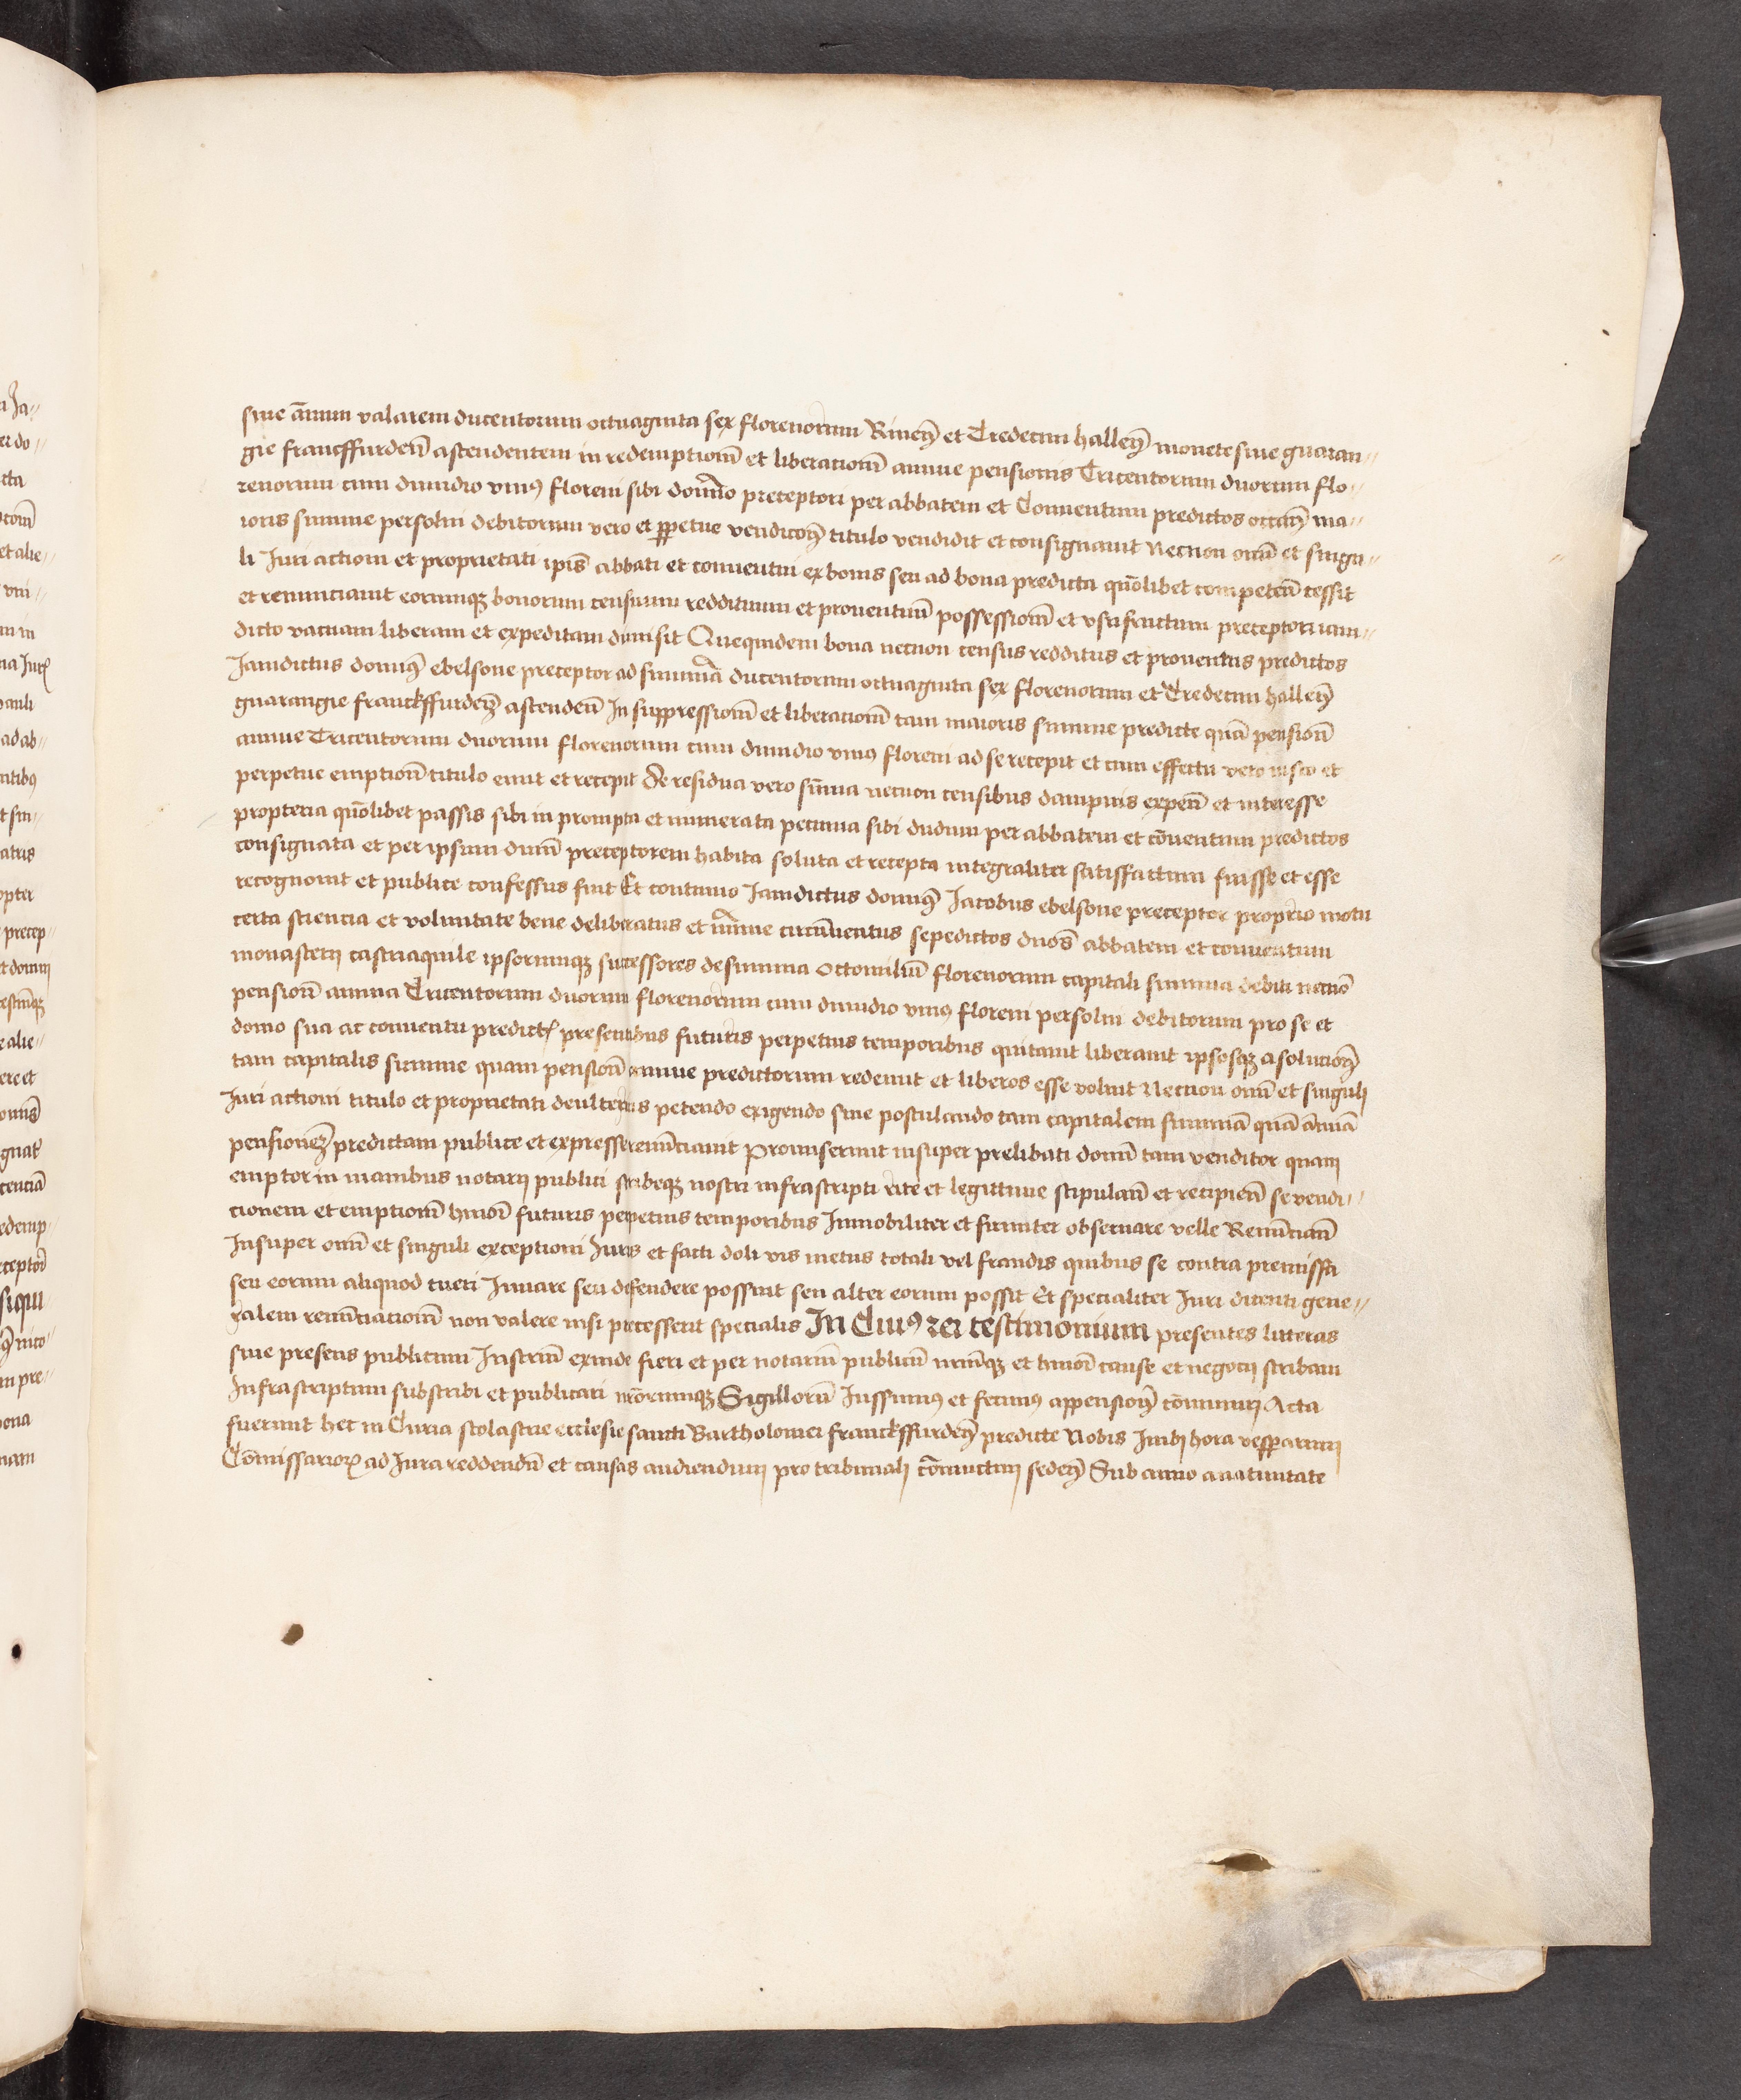 siue āннuм valarem ducentorum octuaginta sex florenorum Rineñ et Tredecim halleñ monete siue guaran〃
gie francffurdeñ ascendentem in redemptionē et liberationē annue pensionis Tricentorum duorum flo〃
renorum cum dimidio vniꝰ floreni sibi domino preceptori per abbatem et Conuentum predictos ma〃
ioris summe persolui debitorum vero et ꝑpetue vendicoñ titulo vendidit et consignauit Necnon om̄i et singu〃
li Iuri actioni et proprietati ip̄is abbati et conuentui ex bonis seu ad bona predicta quōlibet competen̄ cessit
et renunciauit eorumqꝫ bonorum censuum reddituum et prouentuū possessionē et vsufructum preceptor iam〃
dicto vacuam liberam et expeditam dimisit Quequidem bona necnon census redditus et prouentus predictos
Iamdictus domiñ ebelsone preceptor ad summā ducentorum octuaginta sex florenorum et Tredecim halleñ
guarangie franckffurdeñ ascendeñ In suppressionē et liberationē tam maioris summe predicte quā pensionē
annue Tricentorum duorum florenorum cum dimidio vniꝰ floreni ad se recepit et cum effectu vero iusto et
perpetue emptionē titulo emit et recepit De residua vero sum̄a necnon censibus dampnis expen̄ et interesse
propterea quōlibet passis sibi in prompta et numerata pecunia sibi dudum per abbatem et cōuentum predictos
consignata et per ipsum dnm̄ preceptorem habita soluta et recepta integraliter satisfactum fuisse et esse
recognouit et publice confessus fuit Et continuo Iamdictus domiñ Iacobus ebelsone preceptor proprio motu
certa sciencia et voluntate bene deliberatus et mi͞me circūuentus sepedictos dnōs abbatem et conuentum
monasterij castriaquile ipsorumqꝫ successores de summa Octomiliū florenorum capitali summa debiti necnō
pensionē annua Tricentorum duorum florenorum cum dimidio vniꝰ floreni persolui debitorum pro se et
domo sua ac conuentu predict̄ presentibus futuris perpetuis temporibus quitauit liberauit ipsosqꝫ a solutioñ
tam capitalis summe quam pensionē annue predictorum redemit et liberos esse voluit Necnon om̄i et singulj
Iuri actioni titulo et proprietati de vlterius petendo exigendo siue postulando tam capitalem summā quā ānuā
pensioneꝫ predictam publice et expresse renūciauit Promiserunt insuper prelibati domi̅ tam venditor quam
emptor in manibus notarij publici scribeqꝫ nostri infrascripti rite et legittime stipulan̄ et recipien̄ se vendi〃
cionem et emptionē hmōi futuris perpetuis temporibus Immobiliter et firmiter obseruare velle Renūcian̄
Insuper om̄i et singuli exceptioni Iuris et facti doli vis metus totali vel fraudis quibus se contra premissa
seu eorum aliquod tueri Iuuare seu defendere possint seu alter eorum possit Et specialiter Iuri dicenti gene〃
ralem renūciationē non valere nisi precesserit specialis In Cuiꝰ rei testimonium presentes litteras
siue presens publicum Instrum̄ exinde fieri et per notariū publicū nrm̄qꝫ et hmōi cause et negocij scribam
Infrascriptum subscribi et publicari nrōrumqꝫ Sigillorū Iussimꝰ et fecimꝰ appensioñ cōmunirj Acta
fuerunt hec in Curia scolastrie ecclesie sancti Bartholomei franckffurdeñ predicte Nobis Inibj hora vesperarum
Cōmissarioꝝ ad Iura reddendū et causas audiendum pro tribunalj cōniunctim sedeñ Sub anno a natiuitate